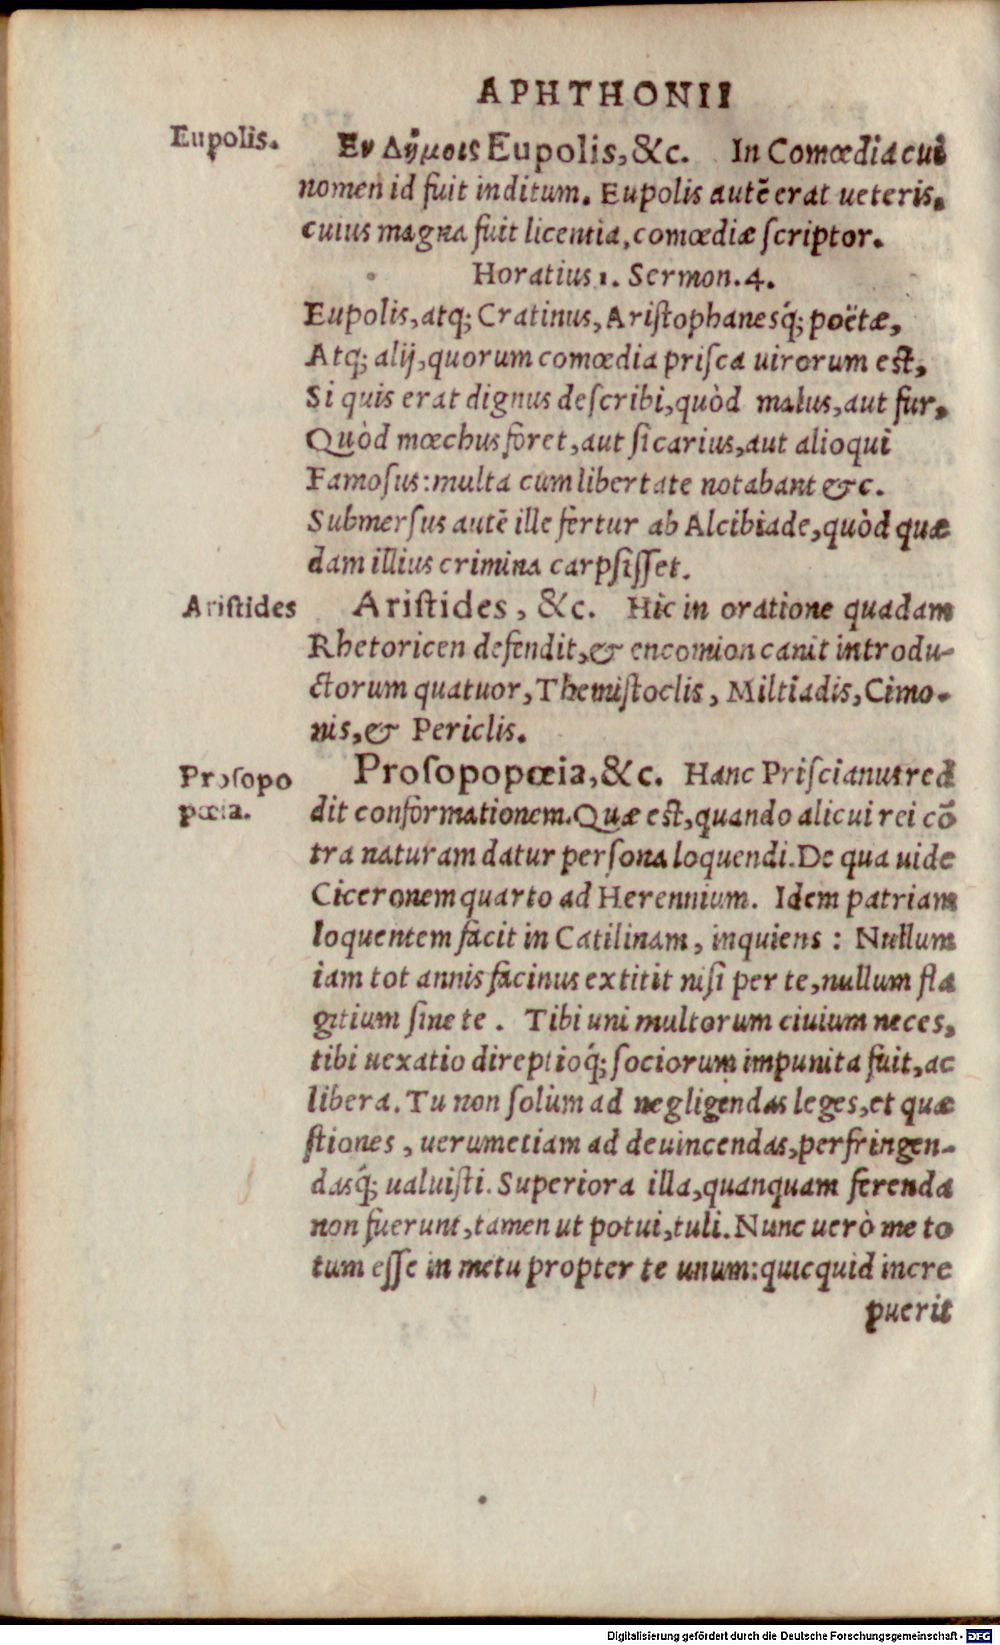 APHTHONII
Eupolis.
Εν Δήμοις Eupolis, &c. In Comœdia cui
nomen id fuit inditum. Eupolis autē erat ueteris,
cuius magna fuit licentia, comœdiæ ſcriptor.
Horatius 1. Sermon. 4.
Eupolis, atq; Cratinus, Ariſtophanesq́; poëtæ,
Atq; alij, quorum comœdia priſca uirorum eſt,
Si quis erat dignus deſcribi, quòd malus, aut fur,
Quòd mœchus foret, aut ſicarius, aut alioqui
Famoſus: multa cum libertate notabant &c.
Submerſus autē ille fertur ab Alcibiade, quòd quæ
dam illius crimina carpſiſſet.
Ariſtides
Ariſtides, &c. Hic in oratione quadam
Rhetoricen defendit, & encomion canit introdu-
ctorum quatuor, Themiſtoclis, Miltiadis, Cimo-
nis, & Periclis.
Proſopo
pœia.
Proſopopœia, &c. Hanc Priſcianus red
dit conformationem. Quæ eſt, quando alicui rei cō
tra naturam datur perſona loquendi. De qua uide
Ciceronem quarto ad Herennium. Idem patriam
loquentem facit in Catilinam, inquiens: Nullum
iam tot annis facinus extitit niſi per te, nullum fla
gitium ſine te. Tibi uni multorum ciuium neces,
tibi uexatio direptioq́; ſociorum impunita fuit, ac
libera. Tu non ſolùm ad negligendas leges, et quæ
ſtiones, uerumetiam ad deuincendas, perfringen-
dasq́; ualuiſti. Superiora illa, quanquam ferenda
non fuerunt, tamen ut potui, tuli. Nunc uerò me to
tum eſſe in metu propter te unum: quicquid incre
puerit
Digitalisierung gefördert durch die Deutsche Forschungsgemeinschaft - DFG